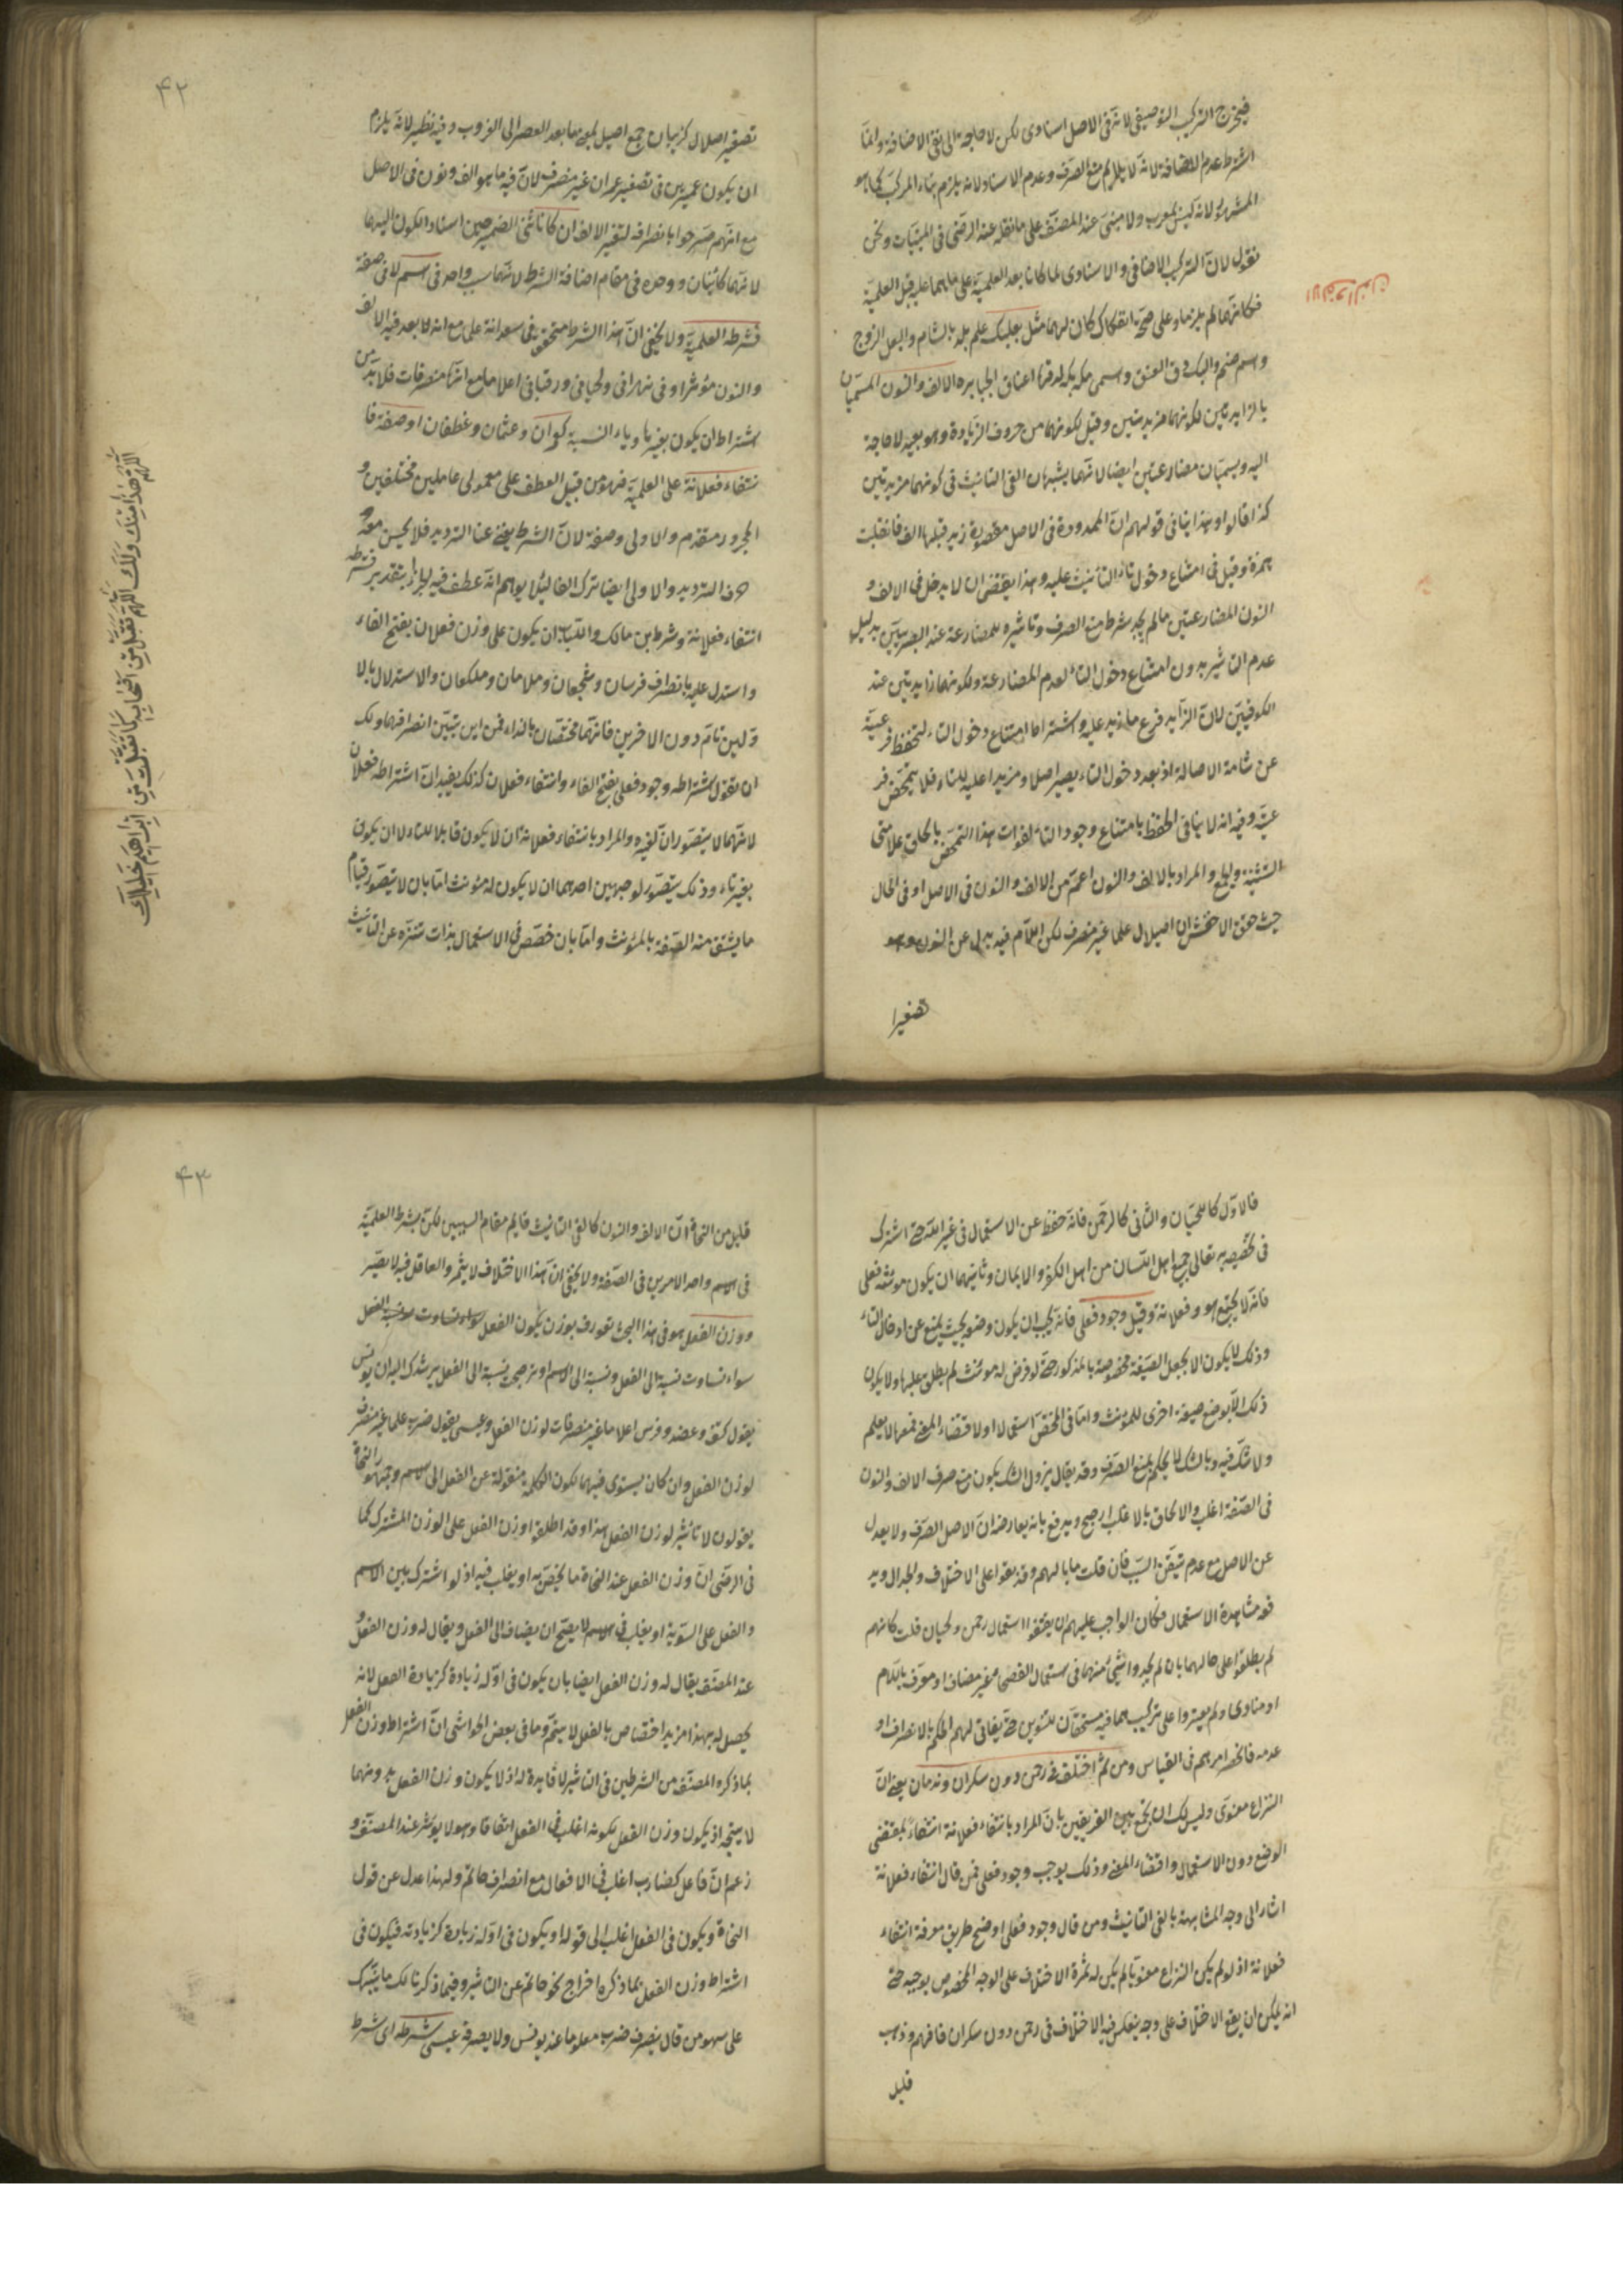 فيخرج التركيب التوصيفي لانه في الاصل اسنادى لكن لا حاجة الى نفى الاضافة وانما
اشترط عدم الاضافة لانه لا يلايم منع الصرف وعدم الاسناد لانه يلزم بناء المركب كما هو
المشهور لانه ليس بمعرب ولا مبنى عند المصنف على ما نقله عنه الرضى في المبنيات ونحن
نقول لان التركيب الاضافى والاسنادى لما كانا بعد العلمية على ما هما عليه قبل العلمية
فكانهما لم يلزما وعلى صحة انفكاك كان لهما مثل بعلبك علم بلد بالشام والبعل الزوج
واسم صنم والبك دق العنق وسمى مكة بكة لدقها اعناق الجبابرة الالف والنون المسميان
بالزايدتين لكونهما مزيدتين وقيل لكونهما من حروف الزيادة وهو بعيد لا حاجة
اليه ويسميان مضارعتين ايضا لانهما يشبهان الفى التانيث في كونهما مزيدتين
كذا قالوا وهذا ينافى قولهم ان الممدودة في الاصل مقصورة زيد قبلها الف فانقلبت
همزة وقيل في امتناع دخول تاء التانيث عليه وهذا يقتضى ان لا يدخل في الالف و
النون المضارعتين ما لم يجد شرط منع الصرف وتاثيره للمضارعة عند البصريين بدليل
عدم التاثير بدون امتناع دخول التاء لعدم المضارعة ولكونهما زايدتين عند
الكوفيين لان الزايد فرع ما زيد عليه واشتراط امتناع دخول التاء لتحفظ فرعية
عن شامة الاصالة اذ بعد دخول التاء يصير اصلا ومزيدا عليه للتاء فلا يتمحض فر
عية وفيه انه لا ينافى الحفظ بامتناع وجود التاء لفوات هذا التمحض بالحاق علامتى
التثنية والجمع والمراد بالالف والنون اعم من الالف والنون في الاصل او في الحال
حيث حقق الاخفش ان اصيلال علما غير منصرف لكن اللام فيه بدل عن النون وهو
تصغير
الالف والنون
٤٢
تصغير اصلال كزيبان جمع اصيل لمعنى ما بعد العصر الى الغروب وفيه نظير لانه يلزم
ان يكون عميرين في تصغير عمران غير منصرف لان فيه ما هو الف ونون في الاصل
مع انهم صرحوا بانصرافه لتغير الالف ان كانا ثنى الضمير حين اسناد الكون اليهما
لانهما كائنان ووحده في مقام اضافة الشرط لانهما سبب واحد في اسم لا في صفة
فشرطه العلمية ولا يخفى ان هذا الشرط متحقق في سعدانة علما مع انه لا يعد فيه الالف
والنون مؤثرا وفى نهرانى ولحيانى ورقبانى اعلاما مع انها منصرفات فلا بد من
اشتراط ان يكون بغير هاء وياء النسبة كعمران وعثمان وغطفان او صفة فا
نتفاء فعلانة على العلمية فهو من قبيل العطف على معمولى عاملين مختلفين و
المجرور مقدم والاولى وصفة لان الشرط يغنى عنا الترديد فلا يحسن معه
هذا الترديد والاولى ايضا ترك الفا لئلا يوهم انه عطف فيه الجزا بتقدير فشرطه
انتفاء فعلانة وشرط بن مالك واللباب ان يكون على وزن فعلان بفتح الفاء
واستدل عليه بانصراف فرسان وشجعان وملامان وملكعان والاستدلال بالا
ولين تام دون الاخرين فانهما مختصان بالنداء فمن اين يتبين انصرافهما ولك
ان تقول اشتراط وجود فعلى بفتح الفاء وانتفاء فعلان كذلك يفيد ان اشتراطه فعلان
لانهما لا يتصوران لغيره والمراد بانتفاء فعلانة ان لا يكون قابلا للتاء لا ان يكون
بغير تاء وذلك يتصور لوجهين احدهما ان لا يكون له مؤنث اما بان لا يتصور قيام
ما يشتق منه الصفة بالمؤنث واما بان خصص في الاستعمال بذات تنزه عن التانيث
اللهم هذا منك ولك اللهم تقبل من اصحابه كما تقبلت من ابراهيم خليلك
فالاول كاللحيان والثانى كالرحمن فانه حفظ عن الاستعمال في غير الله حتى اشترك
في تخصيصه به تعالى جميع اهل اللسان من اهل الكفر والايمان وثانيهما ان يكون مؤنثه فعلى
فانه لا يجتمع هو وفعلانة وقيل وجود فعلى فانه يجب ان يكون وضعه بحيث يمنع عن ادخال التاء
وذلك لا يكون الا بجعل الصيغة مخصوصة بالمذكور حتى لو فرض له مؤنث لم يطلق عليها ولا يكون
ذلك الا بوضع صيغة اخرى للمؤنث واما في المختص استعمالا او لاقتضاء المعنى فمعها لا يعلم
ولا شك فيه وبالشك لا يحكم بمنع الصرف وقد يقال يزول الشك بكون منع صرف الالف والنون
في الصفة اغلب والالحاق بالاغلب ارجح ويدفع بانه يعارضه ان الاصل الصرف ولا يعدل
عن الاصل مع عدم تيقن السبب فان قلت ما بالهم وقد بقوا على الاختلاف والجدال ويد
فعه مشاهدة الاستعمال فكان الواجب عليهم ان يحققوا استعمال رحمن ولحيان قلت كانهم
لم يطلعوا على حالهما بان لم يجدوا شئ منهما في استعمال الفصحى غير مضاف او معرف باللام
او منادى ولم يعتبروا على تركيب هما فيه مستحقان للتنوين حتى يفاتى لهم الحكم بالانصراف او
عدمه فانحصر امرهم في القياس ومن ثم اختلف في رحمن دون سكران وندمان يعنى ان
النزاع معنوى وليس لك ان تجمع بين الفريقين بان المراد بانتفاء فعلانة انتفاءً بمقتضى
الوضع دون الاستعمال واقتضاء المعنى وذلك يوجب وجود فعلى فمن قال انتفاء فعلانة
اشار الى وجه المشابهة بالفى التانيث ومن قال وجود فعلى اوضح طريق معرفة انتفاء
فعلانة اذ لو لم يكن النزاع معنويا لم يكن له ثمرة الاختلاف على الوجه المخصوص بوجيه حتى
انه يمكن ان يقع الاختلاف على وجه ينعكس فيه الاختلاف في رحمن دون سكران فافهم وذهب
قليل
٤٣
قليل من النحاة ان الالف والنون كالفى التانيث قايم مقام السببين لكن بشرط العلمية
في الاسم واحد الامرين في الصفة ولا يخفى ان هذا الاختلاف لا يثمر والعاقل فيه لا يصير
ووزن الفعل هو في هذا البحث تعورف بوزن يكون الفعل سواء تساوت نسبة الفعل
سواء تساوت نسبته الى الفعل ونسبته الى الاسم او ترجح نسبته الى الفعل يرشدك اليه ان يونس
يقول كتف وعضد وفرس اعلاما غير منصرفات لوزن الفعل وعيسى يقول ضرب علما غير منصرف
لوزن الفعل وان كان يستوى فيهما لكون الكلمة منقولة عن الفعل الى الاسم وجمهور النحاة
يقولون لا تاثير لوزن الفعل هذا وقد اطلقوا وزن الفعل على الوزن المشترك كما
في الرضى ان وزن الفعل عند النحاة ما يختص به او يغلب فيه اذ لو اشترك بين الاسم
والفعل على السوية او يغلب في الاسم لا يصح ان يضاف الى الفعل ويقال له وزن الفعل و
عند المصنف يقال له وزن الفعل ايضا بان يكون في اوله زيادة كزيادة الفعل لانه
يحصل له بهذا مزيد اختصاص بالفعل لا سيما وما في بعض الحواشى ان اشتراط وزن الفعل
بما ذكره المصنف من الشرطين في التاثير لا فايدة له اذ لا يكون وزن الفعل بدونهما
لا يتجه اذ يكون وزن الفعل بكونه اغلب في الفعل اتفاقا وهو لا يؤثر عند المصنف و
زعم ان فاعل كضارب اغلب في الافعال مع انصراف حاتم ولهذا عدل عن قول
النحاة ويكون في الفعل اغلب الى قوله او يكون في اوله زيادة كزيادته فيكون في
اشتراط وزن الفعل بما ذكره اخراج نحو حاتم عن التاثير وفيما ذكرنا لك ما ينبهك
على سهو من قال ينصرف ضرب معلوما عند يونس ولا يصرفه عيسى شرطه اى شرط